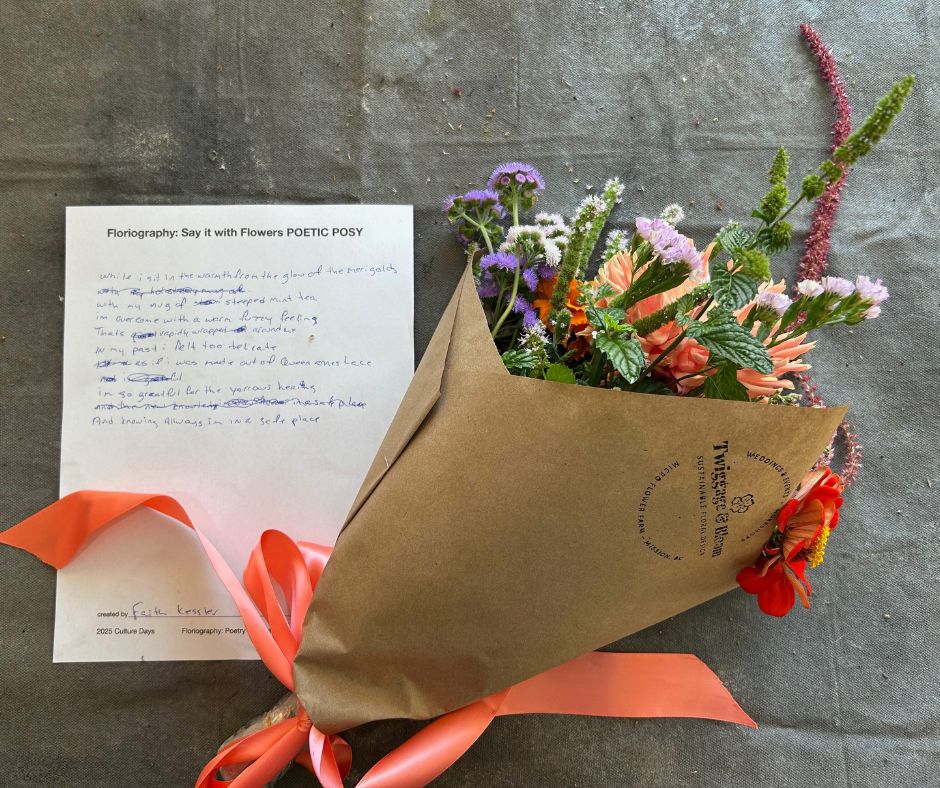 Floriography: Say it with Flowers POETIC POSY
While i sit in the warmth from the glow of the merigolds
with my mug of steeped mint tea
im overcome with a warm fuzzy feeling
That's rapidly wrapped around me
in my past i felt too delicate
as if i was made out of Queen annes Lace
im so greatful for the yarrows healing
in a safe place
And knowing Allways im in a safe place
created by Faith Kessler
2025 Culture Days Floriography: Poetry
Twiggage & Bloom
SUSTAINABLE FLORAL DESIGN
MICRO FLOWER FARM - MISSION, BC
WEDDINGS & EVENTS - WORKSHOPS